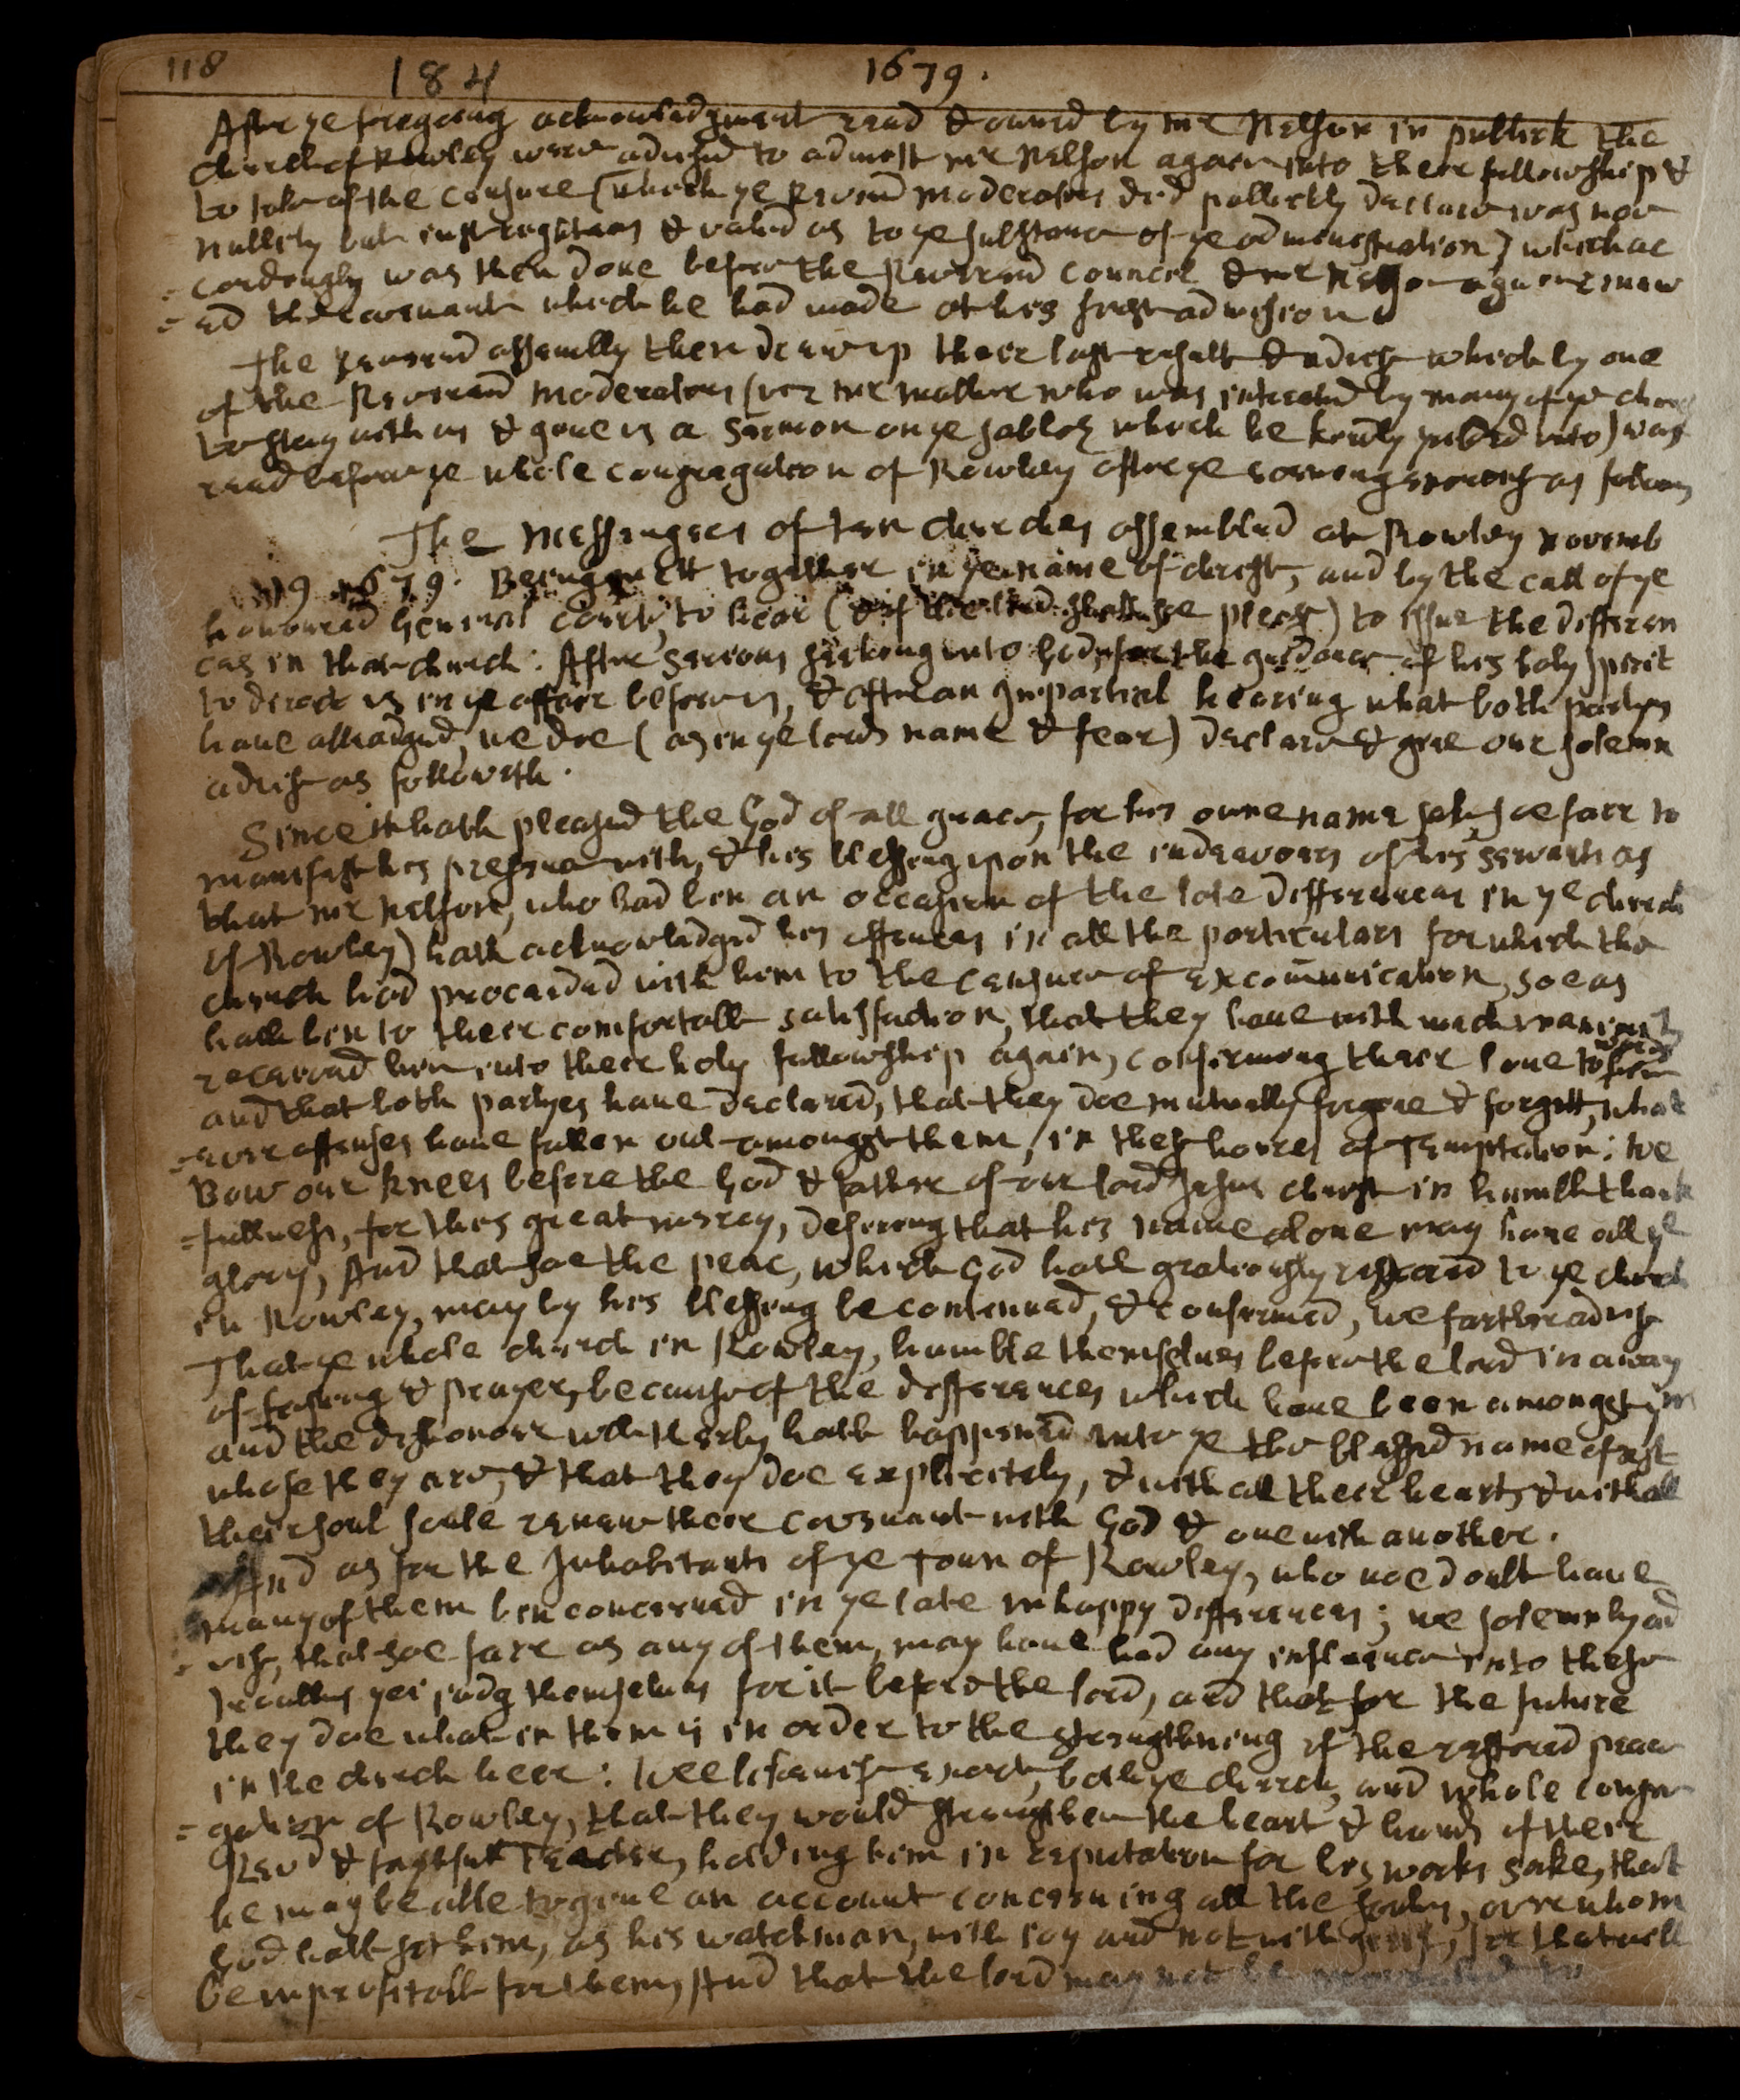 118 184 1679.
After ye foregoing acknowledgment read & owned by mr Nelson in publick the
church of Rowley were advised to admitt mr Nelson again into their fellowship &
to take of the censure (which ye Revernd moderators did publickly declare was noe
nullity but just righteous & valid as to ye substance of ye administration) which ac
=cordingly was then done before the Reverend Councel & mr Nelson again renew
=ed the covenant which he had made at his first admission.
The Reverend assembly then drew up their last result & advise which by one
of the Reverend moderators (viz mr mather who was intreated by many of ye church
to stay with us & gave us a sermon on ye sabboth which he kindly yeelded unto) was
read before ye whole congregation of Rowley after ye evening exercise as follows
The Messengers of ten churches assembled at Rowley novemb
19 1679. Being mett together in ye name of christ, and by the call of ye
honoured General court, to hear (& if the lord shall soe please) to issue the differen
ces in that church: After serious seeking unto God for the guidance of his holy spirit
to direct us in ye affair before us, & after an Impartial hearing what both partyes
have alleadged, we doe (as in ye lords name & fear) declare & give our solemn
advise as followeth.
Since it hath pleased the God of all grace, for his owne name sake, soe farr to
manifest his presence with, & his blessing upon the indeavours of his servants as
that mr Nelson, who had ben an occasion of the late differences in ye church
of Rowley) hath acknowledged his offences in all the particulars for which the
church had proceeded with him to the censure of excommunication, soe as
hath ben to their comfortable satisfaction, that they have with much
received him into their holy fellowship again, confirming their love towards him
and that both partyes have declared, that they doe mutually forgive & forgett, what
=ever offenses have fallen out amongst them, in these houres of Temptation: we
Bow our knees before the God & father of our lord Jesus christ in humble thank
=fullness, for this great mercy, desireing that his name alone may have all ye
glory, And that soe the peac, which God hath gratiously restored to ye church
in Rowley, may by his blessing be continued, & confirmed, we farther advise
That ye whole church in Rowley, humble themselves before the lord in a way
of fasting & prayer, because of the differences which have been amongst ym
and the dishonour wch therby hath happened unto ye the blessed name of xst
whose they are, & that they doe explicitely, & with all their hearts & with all
their soul soule renew their covenant with God & one with another.
And as for the Inhabitants of ye Town of Rowley, who noe doubt have
many of them ben concerned in ye late unhappy differences; we solemnly ad
=vise, that soe farr as any of them, may have had any influence into these
troubles yei judg themselves for it before the lord, and that for the future
they doe what in them is in order to the strengthning of the restored peace
in the church heer: wee likewise exort, both ye church, and whole congre
=gation of Rowley, that they would strengthen the heart & hands of their
Revd & faithfull Teacher, holding him in reputation for his works sake, that
he may be able to give an account concerning all the soules, over whom
God hath set him, as his watchman, with ioy and not with grief, for that will
be unprofitable for them, And that the lord may not be provoked to